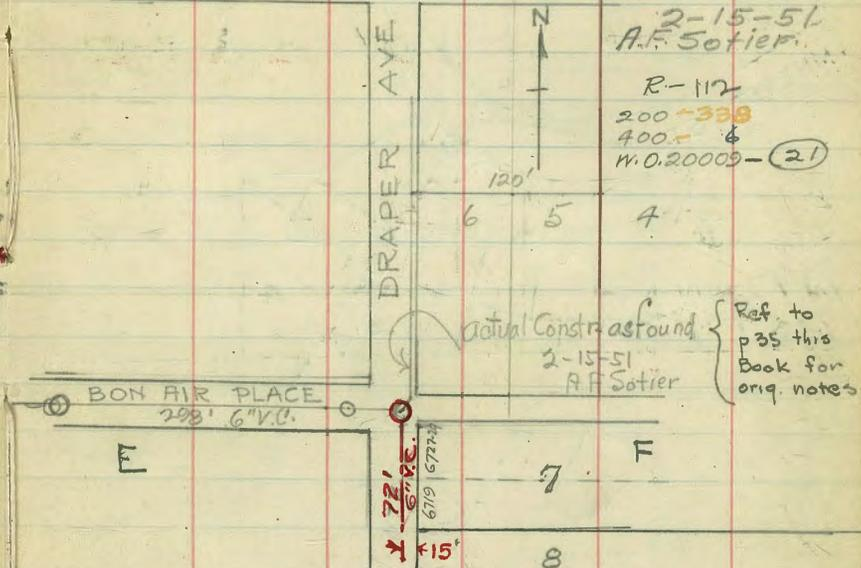 2-15-51
A.F. Sotier.
N
R-112
200-338
400- 6
W.O.20009-(21)
DRAPER AVE
120'
6 5 4
actual Constr. as found
2-15-51
A F Sotier
Ref. to
p35 this
Book for
orig. notes
BON AIR PLACE
298' 6"V.C.
E
72'
6"V.C.
6727-29
6719
F
7
15'
8